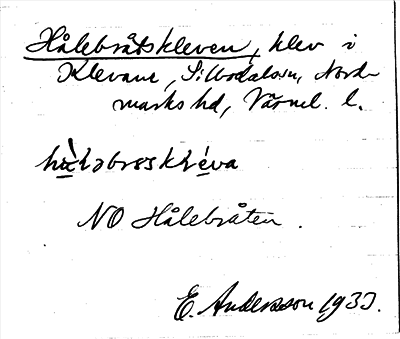 Hålebråtskleven, klev i
Klevane, Sillbodalssn, Nord-
marks hd, Värml. l.
NO Hålebråten.
E. Andersson 193